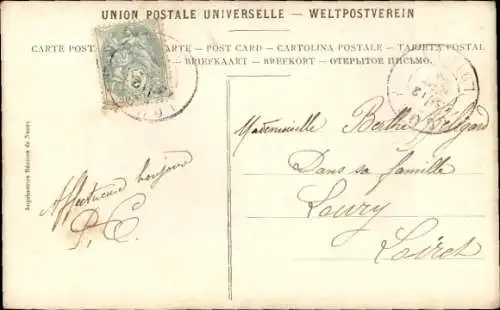 UNION POSTALE UNIVERSELLE — WELTPOSTVEREIN
CARTE POSTALE — POST CARD — CARTOLINA POSTALE — TARJETA POSTAL
BRIEFKAART — BREFKORT — ОТКРЫТОЕ ПИСЬМО.
Imprimeries Réunies de Nancy
Mademoiselle Berthe
Dans sa famille
Loury
Loiret
Affectueux bonjour
P. C.